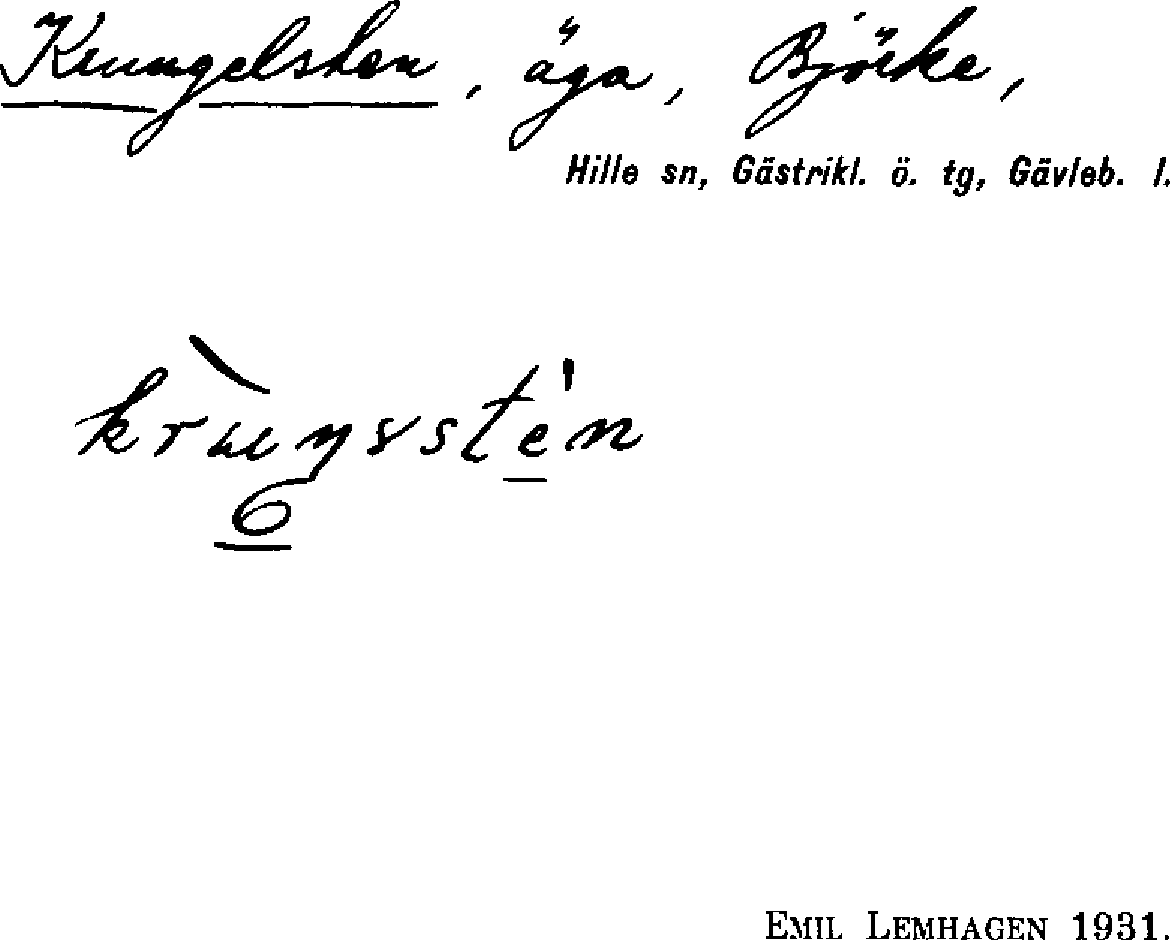 Krungelsten, äga, Björke,
Hille sn, Gästrikl. ö. tg, Gävleb. l.
EMIL LEMHAGEN 1931.